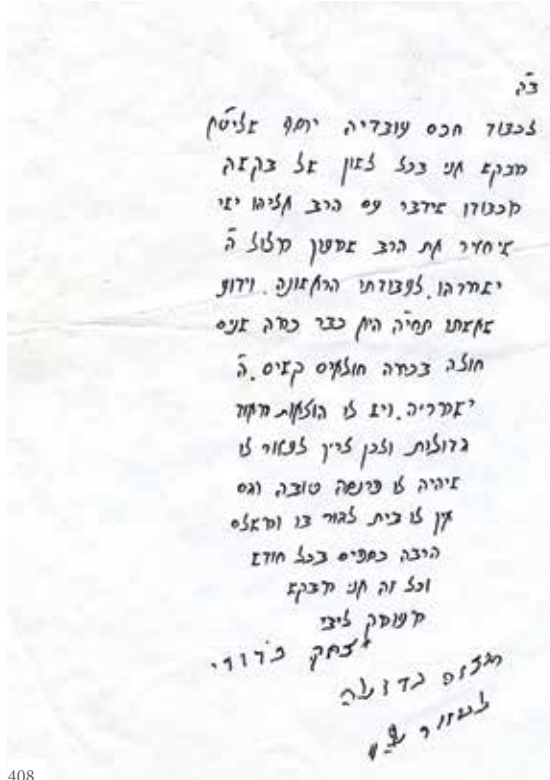 ב"ה
לכבוד חכם עובדיה יוסף שליט"א
מבקש אני בכל לשון של בקשה
מכבודו שידבר עם הרב אליהו ישי
שיחזיר את הרב שמעון ה'
ישמרהו. לעבודתו הראשונה. וידוע
שאשתו תחיה היא כבר כמה שנים
חולה בכמה חולאים קשים. ה'
ישמריה. ויש לו הוצאות מאוד
גדולות ולכן צריך לעזור לו
שיהיה לו פרנסה טובה וגם
אין לו בית לגור בו ומשלם
הרבה כספים בכל חודש
וכל זה אני מבקש
מעומק ליבי
יצחק כדורי
מצוה גדולה
לעזור
408